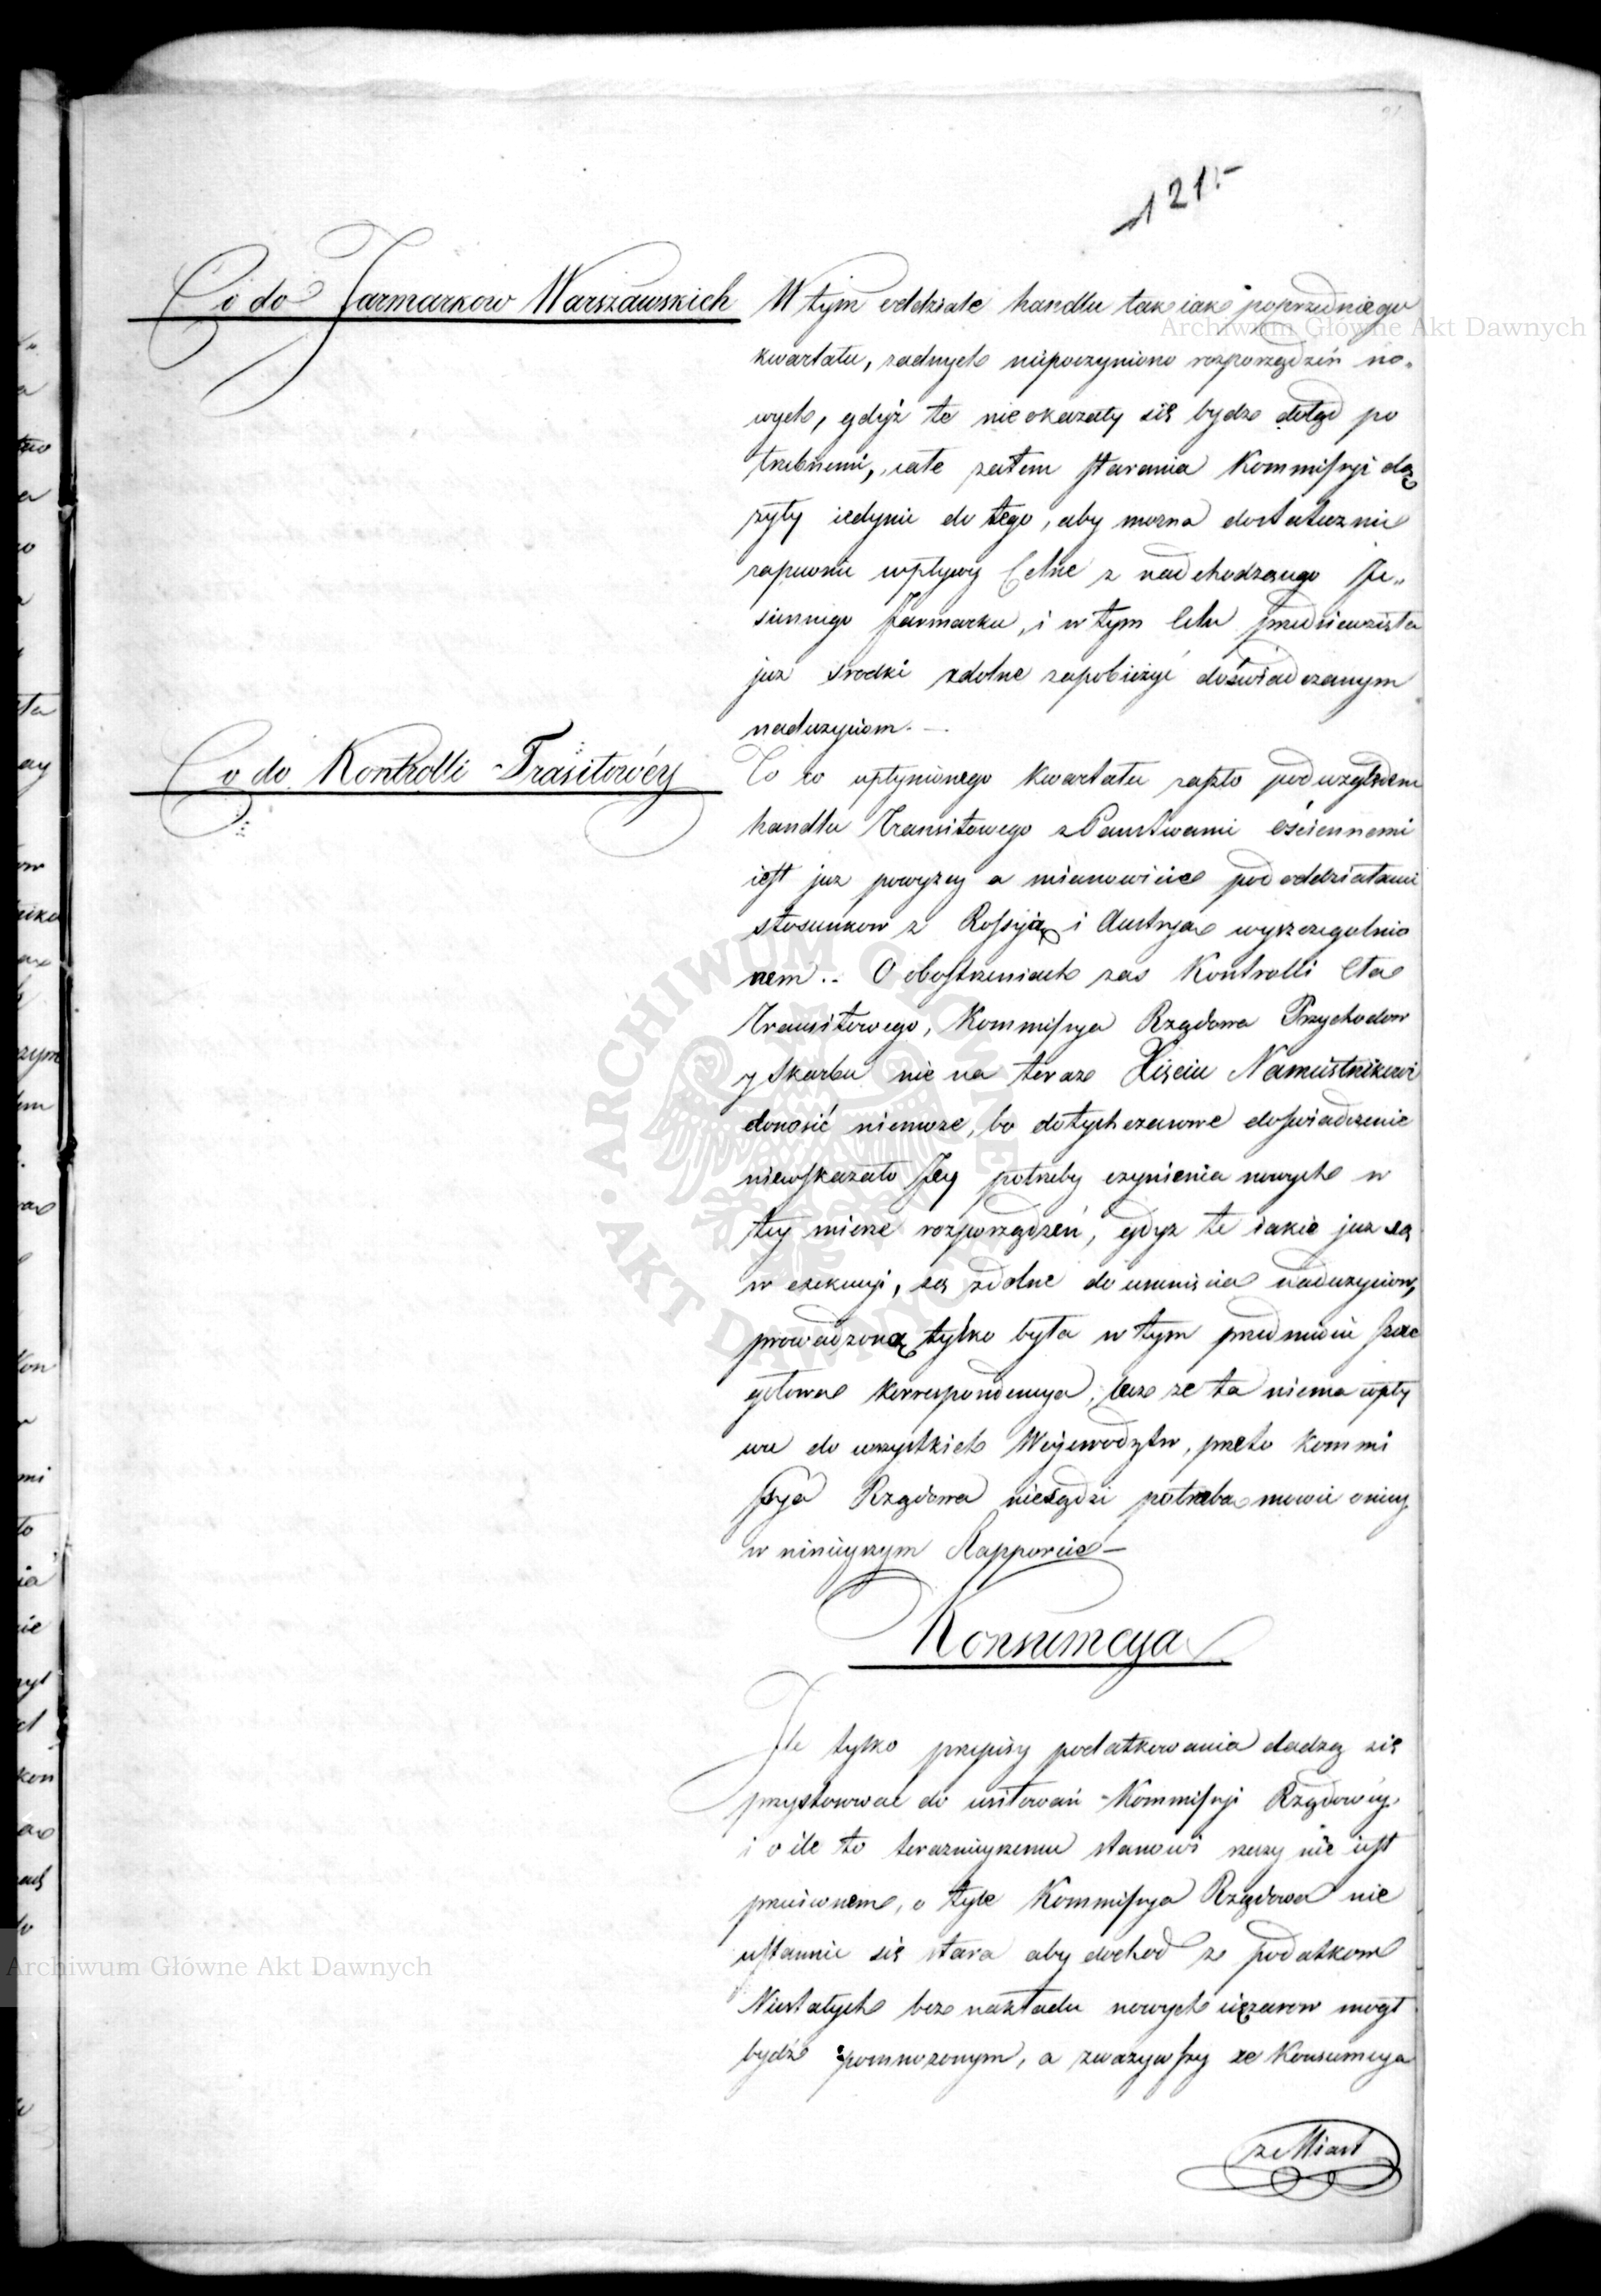 121.-
Co do Jarmarkow Warszawskich
W tym oddziale handlu tak iak poprzedniego
kwartału, zadnych niepoczyniono rozporządzeń no„
wych, gdyż te nie okazały się bydz dotąd po
trzebnemi, cale zatem starania Kommissyi dą
zyły iedynie do tego, aby mozna dostatecznie
zapewnic wpływy Celne z nadchodzącego Je„
siennego Jarmarku, i w tym Celu przedsiewzięła
juz srodki zdolne zapobieżyć doświadczanym
naduzyciom. —
Co do Kontrolli Trasitowéy
To co upłynionego Kwartału zaszło pod względem
handlu Transitowego z Panstwami ościennemi
iest juz powyzey a mianowicie pod oddziałami
stosunkow z Rossyją i Austryą wyszczegolnio
nem.. O obostrzeniach zas Kontrolli Cła
Transitowego, Kommissya Rządowa Przychodow
y Skarbu nic na teraz Xięciu Namiestnikowi
donosić niemoze, bo dotychczasowe doswiadczenie
niewskazało Jey potrzeby czynienia nowych w
tey mierze rozporządzeń, gdyz te iakie juz są
w exekucyi, są zdolne do usunięcia naduzyciow,
prowadzoną tylko była w tym przedmiocie szcze
gołowa korrespondencya, lecz ze ta niema wpły
wu do wszystkich Wojewodztw, przeto Kommi
ssya Rządowa niesądzi potrzeba mowic oniey
w ninieyszym Rapporcie —
Konsumcya
Ile tylko przepisy podatkowania dadzą się
przystosowac do usiłowań Kommissyi Rządowéy
i o ile to teraznieyszemu stanowi rzeczy nie iest
przeciwnem, o tyle Kommissya Rządowa nie
ustannie się stara aby dochod z podatkow
Niestałych bez nakładu nowych ciężarow mogł
bydź pomnozonym, a zwazywszy ze Konsumcya
z Miast
Archiwum Główne Akt Dawnych
Archiwum Główne Akt Dawnych
ARCHIWUM GŁÓWNE AKT DAWNYCH